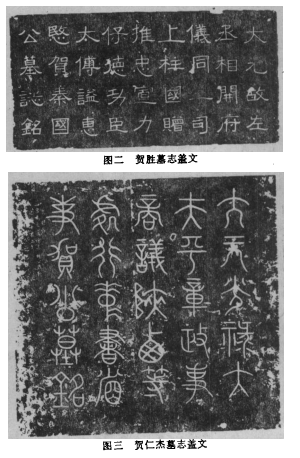 大元故左
丞相開府
儀同三司
上柱國贈
推忠宣力
保德功臣
太傅謚惠
愍賀秦國
公墓誌銘
图二 贺胜墓志盖文
大元光祿大
夫平章政事
商議陝西等
處行中書省
事賀公墓銘
图三 贺仁杰墓志盖文